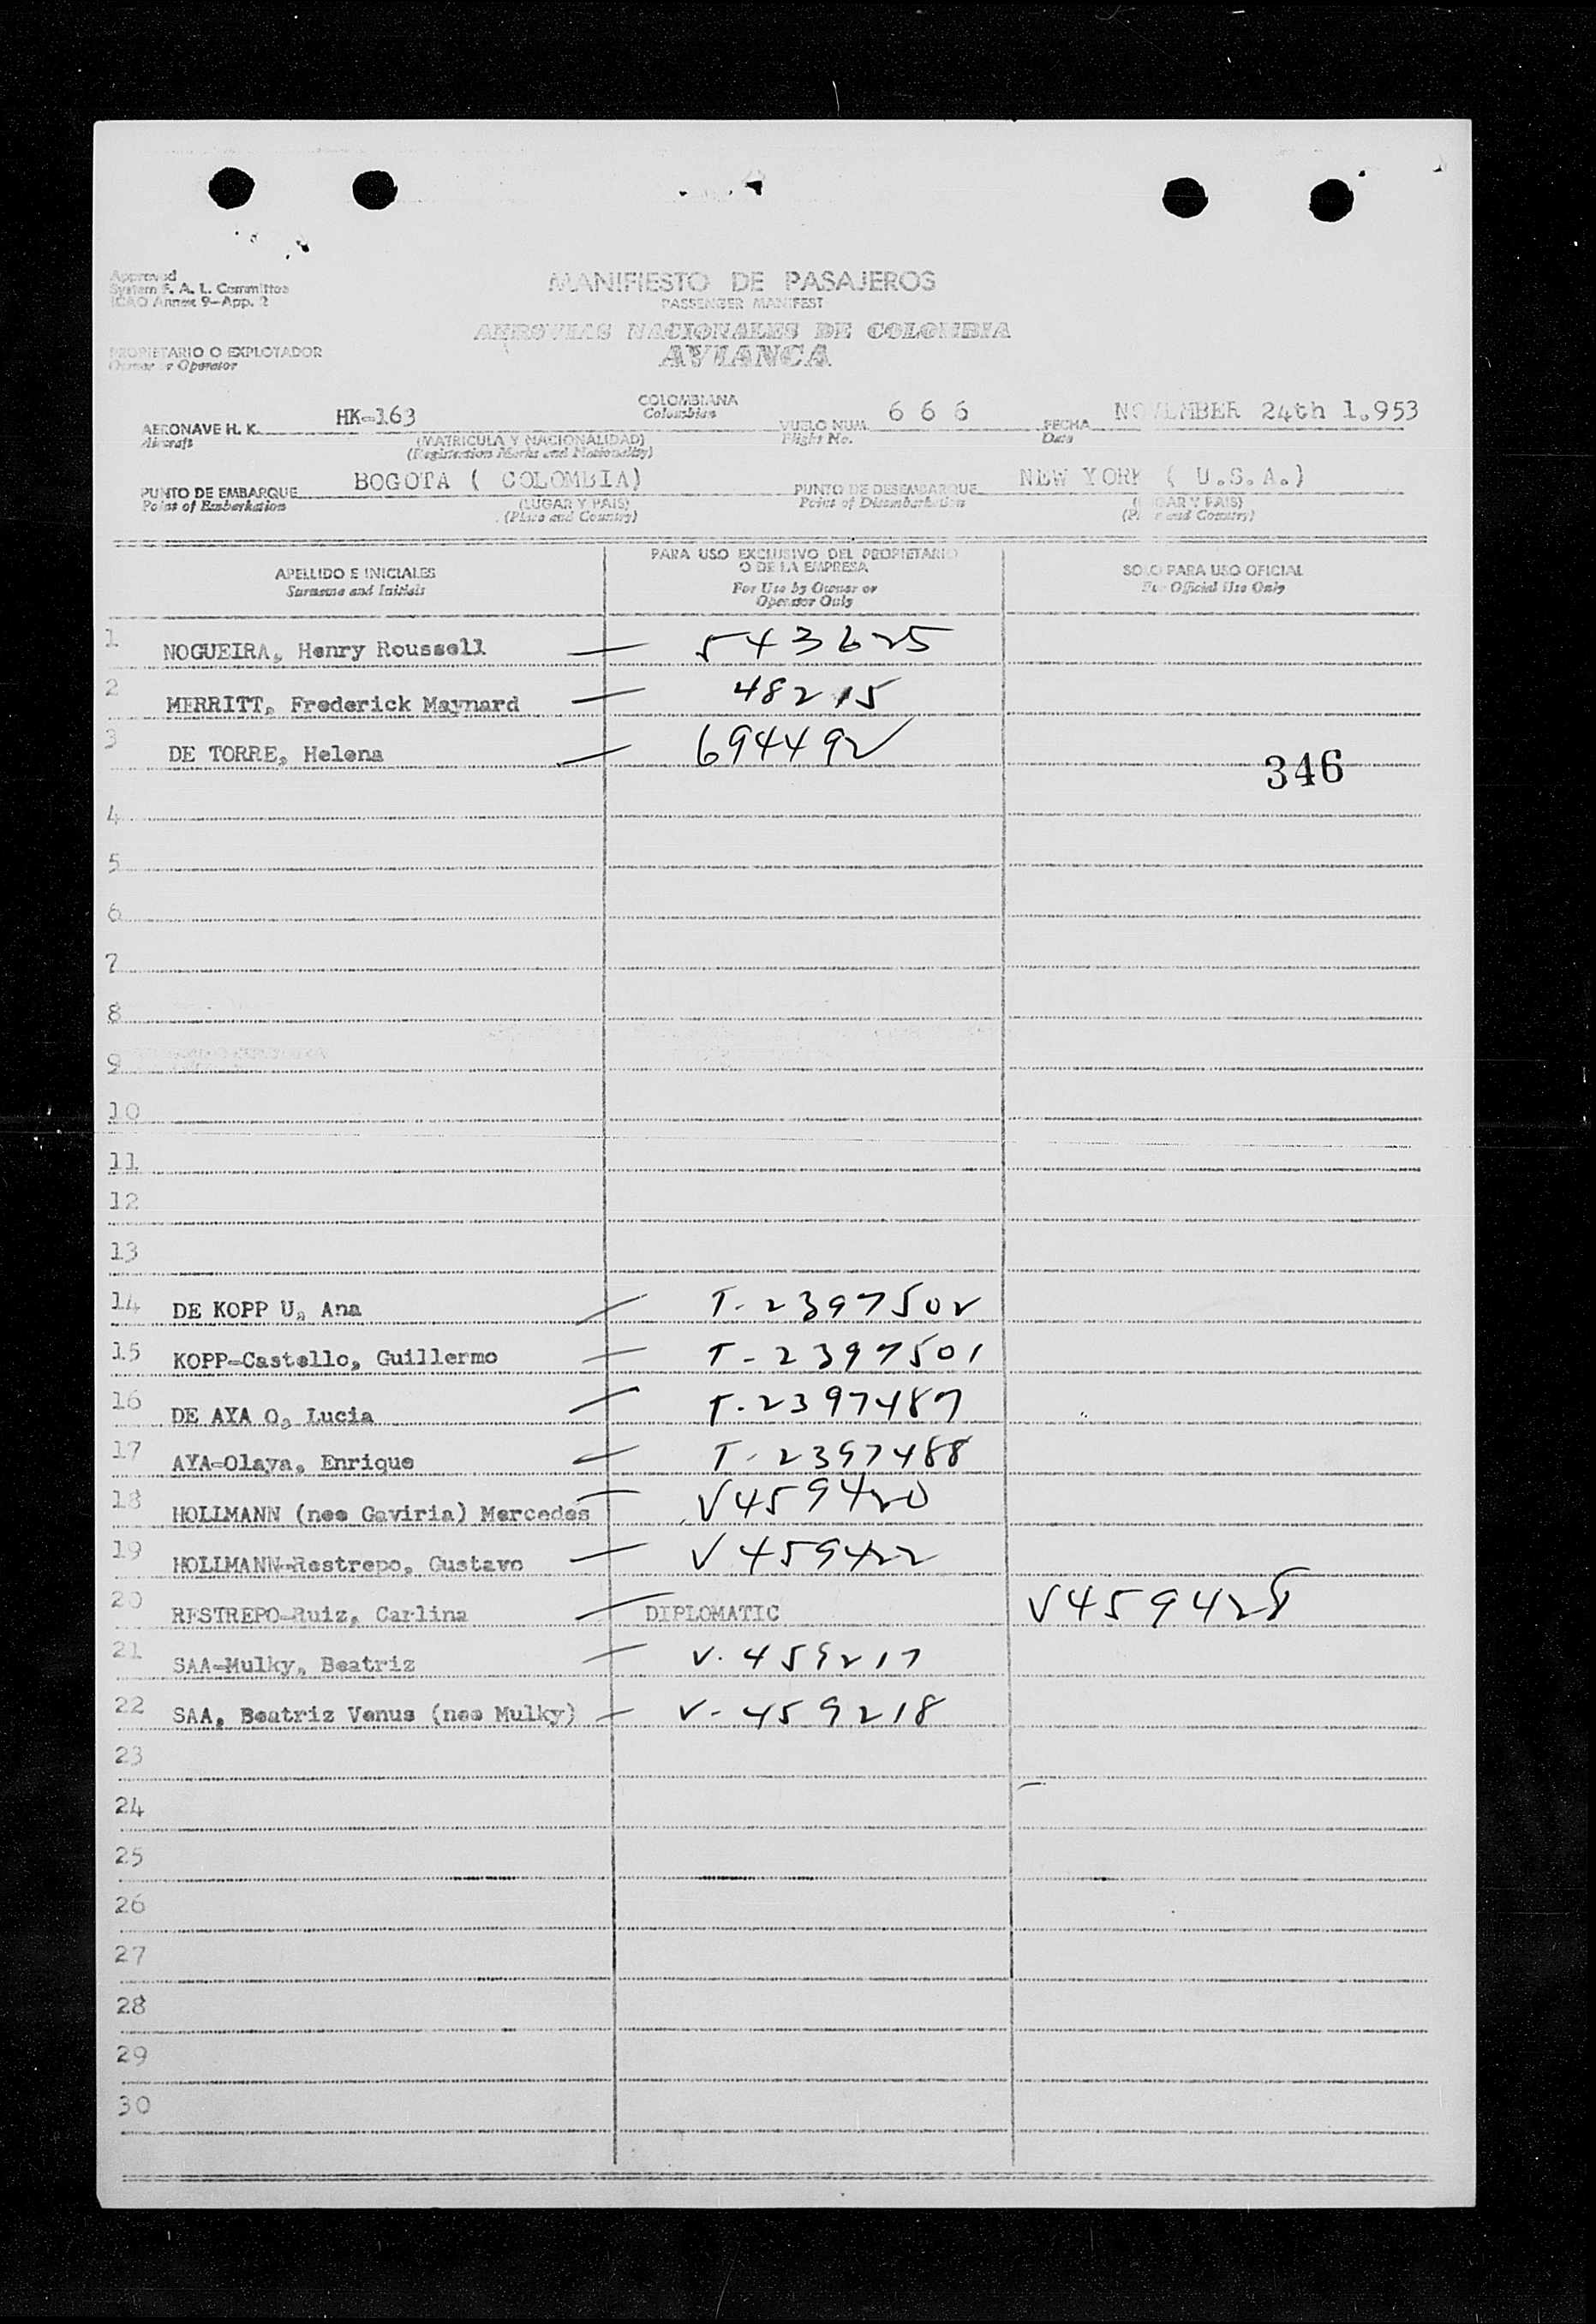 Approved
System F. A. L. Committee
ICAO Annex 9-App. 2
MANIFIESTO DE PASAJEROS
PASSENGER MANIFEST
AEROVIAS NACIONALES DE COLOMBIA
AVIANCA
PROPIETARIO O EXPLOTADOR
Owner or Operator
AERONAVE H. K. HK-163 COLOMBIANA VUELO NUM. 6 6 6 FECHA NOVEMBER 24th 1.953
Aircraft Colombian Flight No. Date
(MATRICULA Y NACIONALIDAD)
(Registration Marks and Nationality)
PUNTO DE EMBARQUE BOGOTA ( COLOMBIA) PUNTO DE DESEMBARQUE NEW YORK ( U.S.A.)
Point of Embarkation (LUGAR Y PAIS) Point of Disembarkation (LUGAR Y PAIS)
(Place and Country) (Place and Country)
APELLIDO E INICIALES PARA USO EXCLUSIVO DEL PROPIETARIO O DE LA EMPRESA SOLO PARA USO OFICIAL
Surname and Initials For Use by Owner or Operator Only For Official Use Only
1 NOGUEIRA, Henry Roussell — 543625
2 MERRITT, Frederick Maynard — 48215
3 DE TORRE, Helena — 694492
346
4
5
6
7
8
9
10
11
12
13
14 DE KOPP U, Ana — T-2397502
15 KOPP-Castello, Guillermo — T-2397501
16 DE AYA O, Lucia — T-2397487
17 AYA-Olaya, Enrique — T-2397488
18 HOLLMANN (nee Gaviria) Mercedes — V459420
19 HOLLMANN-Restrepo, Gustavo — V459422
20 RESTREPO-Ruiz, Carlina — DIPLOMATIC V459428
21 SAA-Mulky, Beatriz — V-459217
22 SAA, Beatriz Venus (nee Mulky) — V-459218
23
24
25
26
27
28
29
30